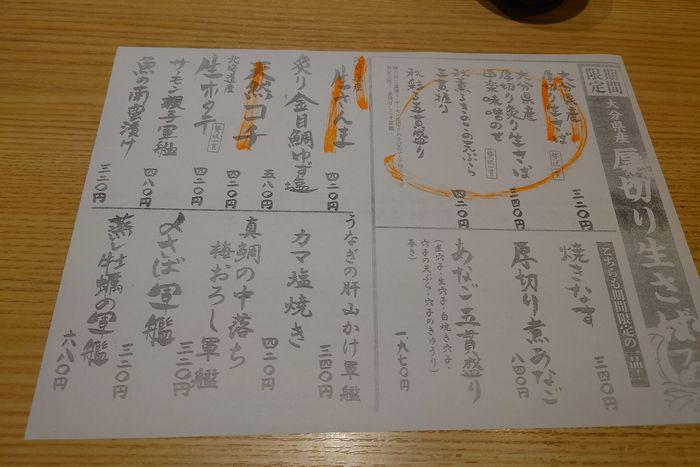 期間限定
大分県産
厚切り生さば
こちらも期間限定の一品！
大分県産
厚切り生さば
三二〇円
大分県産
厚切り炙り生さば
道楽味噌のせ
三四〇円
秋薫るきのこの天ぷら
三貫握り
四二〇円
秋彩る五貫盛り
生さんま
四二〇円
炙り金目鯛ゆず塩
五八〇円
天然コチ
四二〇円
北海道産
生ホタテ
四二〇円
サーモン親子軍艦
四八〇円
魚の南蛮漬け
三二〇円
焼きなす
三四〇円
厚切り煮あなご
八四〇円
あなご五貫盛り
（煮穴子・生穴子・白焼き穴子・
穴子の天ぷら・穴子のきゅうり
巻き）
一、九七〇円
うなぎの肝山かけ軍艦
三四〇円
カマ塩焼き
四二〇円
真鯛の中落ち
梅おろし軍艦
三二〇円
〆さば軍艦
三二〇円
蒸し牡蠣の軍艦
六八〇円